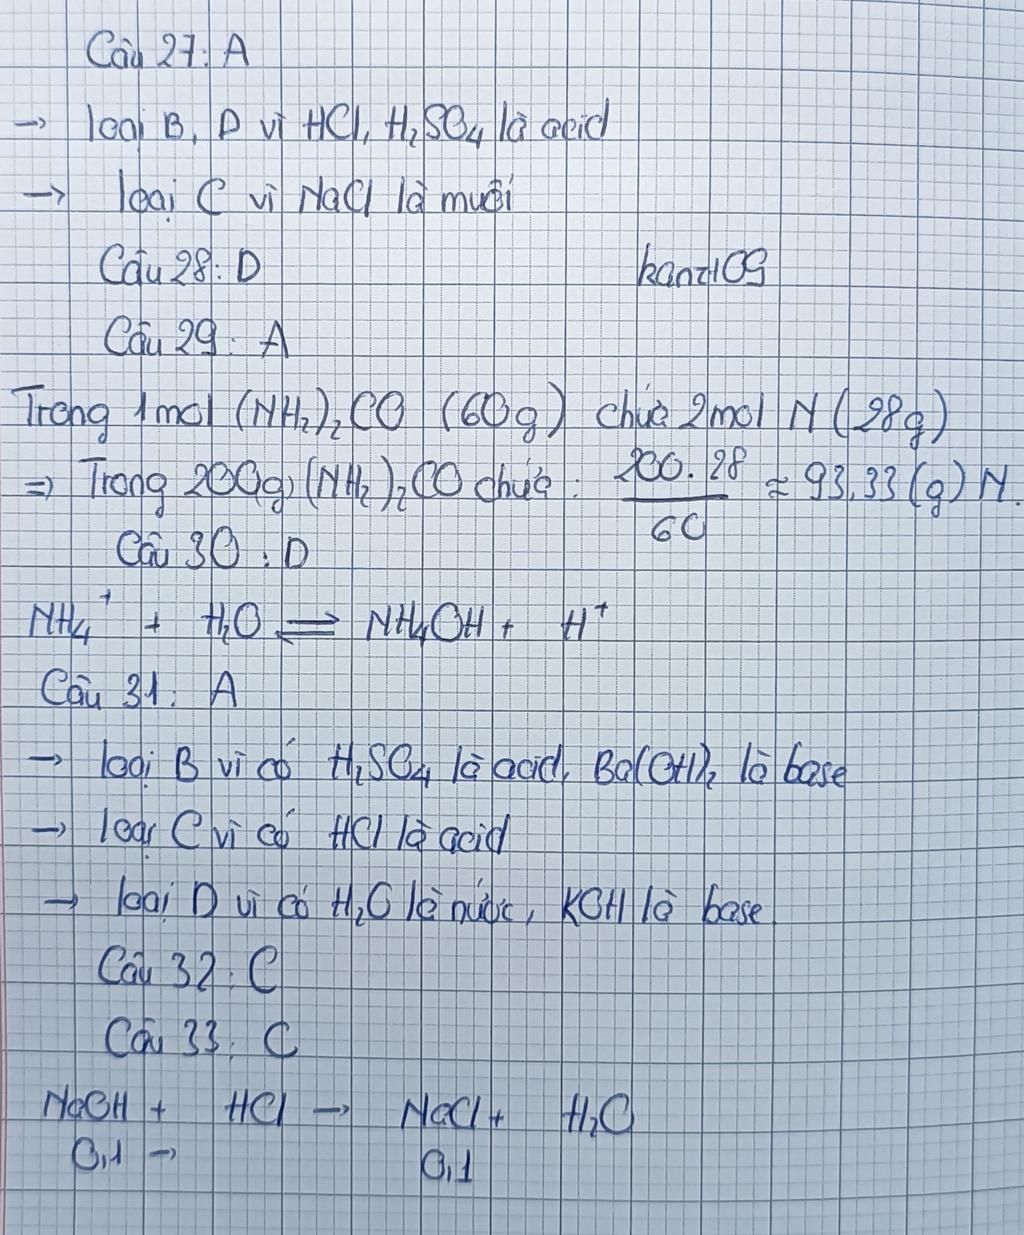 Câu 27: A
→ loại B, D vì HCl, H₂SO₄ là acid
→ loại C vì NaCl là muối
Câu 28: D
kanz109
Câu 29: A
Trong 1 mol (NH₂)₂CO (60g) chứa 2 mol N (28g)
=> Trong 200g (NH₂)₂CO chứa: 200.28/60 ≈ 93,33 (g) N.
Câu 30: D
NH₄⁺ + H₂O ⇌ NH₄OH + H⁺
Câu 31: A
→ loại B vì có H₂SO₄ là acid, Ba(OH)₂ là base
→ loại C vì có HCl là acid
→ loại D vì có H₂O là nước, KOH là base.
Câu 32: C
Câu 33: C
NaOH + HCl → NaCl + H₂O
0,1 → 0,1